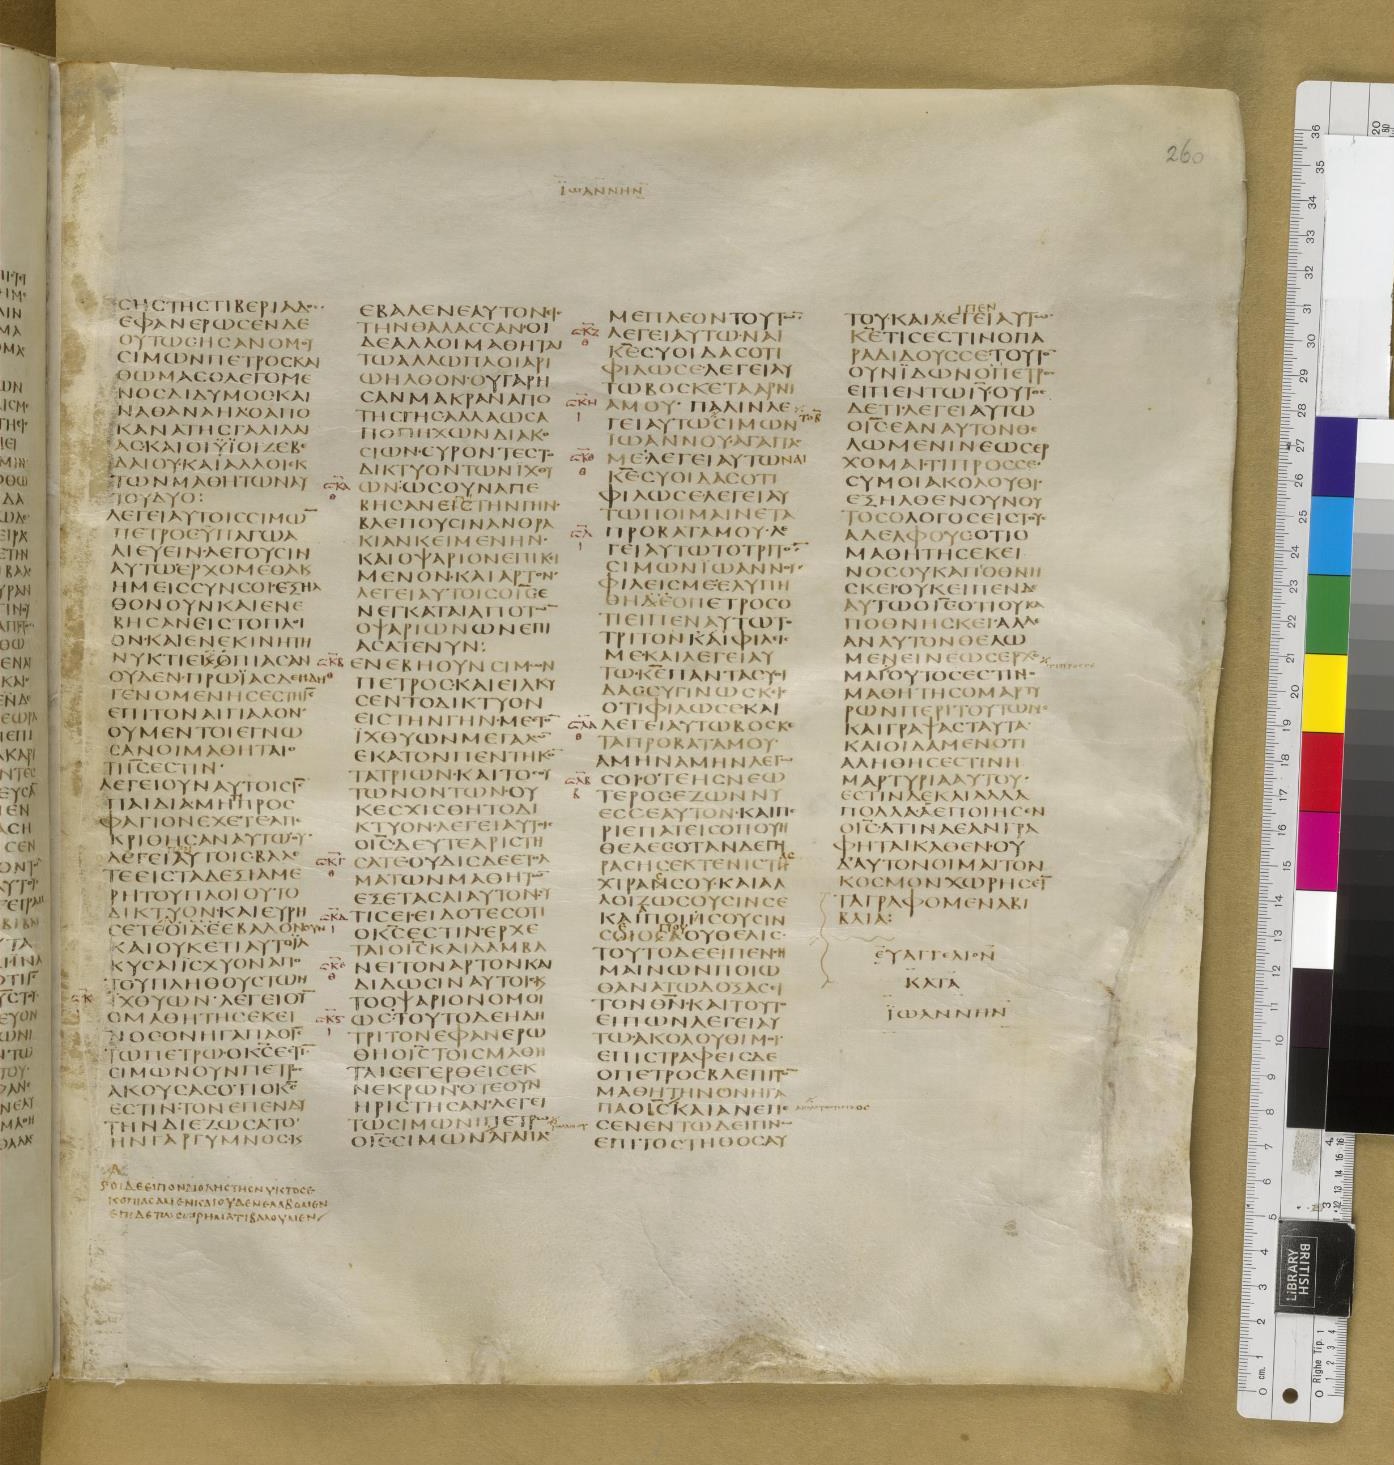 260
ΪΩΑΝΝΗΝ
ϹΗϹΤΗϹΤΙΒΕΡΙΑΔΟϹ
ΕΦΑΝΕΡΩϹΕΝΔΕ
ΟΥΤΩϹΗϹΑΝΟΜΟΥ
ϹΙΜΩΝΠΕΤΡΟϹΚΑΙ
ΘΩΜΑϹΟΛΕΓΟΜΕ
ΝΟϹΔΙΔΥΜΟϹΚΑΙ
ΝΑΘΑΝΑΗΛΟΑΠΟ
ΚΑΝΑΤΗϹΓΑΛΙΛΑΙ
ΑϹΚΑΙΟΙΥΪΟΙΖΕΒΕ
ΔΑΙΟΥΚΑΙΑΛΛΟΙΕΚ
ΤΩΝΜΑΘΗΤΩΝΑΥ
ΤΟΥΔΥΟ:
ΛΕΓΕΙΑΥΤΟΙϹϹΙΜΩ̅
ΠΕΤΡΟϹΥΠΑΓΩΑ
ΛΙΕΥΕΙΝ·ΛΕΓΟΥϹΙΝ
ΑΥΤΩΕΡΧΟΜΕΘΑΚΑΙ
ΗΜΕΙϹϹΥΝϹΟΙ·ΕΞΗΛ
ΘΟΝΟΥΝΚΑΙΕΝΕ
ΒΗϹΑΝΕΙϹΤΟΠΛΟΙ
ΟΝ·ΚΑΙΕΝΕΚΙΝΗΤΗ
ΝΥΚΤΙΕΚΟΠΙΑϹΑΝ
ΟΥΔΕΝ·ΠΡΩΪΑϹΔΕΗΔΗ
ΓΕΝΟΜΕΝΗϹΕϹΤΗΙ̅Ϲ̅
ΕΠΙΤΟΝΑΙΓΙΑΛΟΝ·
ΟΥΜΕΝΤΟΙΕΓΝΩ
ϹΑΝΟΙΜΑΘΗΤΑΙΟ
ΤΙΙ̅Ϲ̅ΕϹΤΙΝ·
ΛΕΓΕΙΟΥΝΑΥΤΟΙϹΙ̅Ϲ̅
ΠΑΙΔΙΑΜΗΠΡΟϹ
ΦΑΓΙΟΝΕΧΕΤΕΑΠΕ
ΚΡΙΘΗϹΑΝΑΥΤΩΟΥ·
ΛΕΓΕΙΑΥΤΟΙϹ·ΒΑΛΕ
ΤΕΕΙϹΤΑΔΕΞΙΑΜΕ
ΡΗΤΟΥΠΛΟΙΟΥΤΟ
ΔΙΚΤΥΟΝ·ΚΑΙΕΥΡΗ
ϹΕΤΕ·ΟΙΔΕΕΒΑΛΟΝΟΥΝ
ΚΑΙΟΥΚΕΤΙΑΥΤΟΪΛ
ΚΥϹΑΙΪϹΧΥΟΝΑΠΟ
ΤΟΥΠΛΗΘΟΥϹΤΩΝ
ΪΧΘΥΩΝ·ΛΕΓΕΙΟΥ̅
ΟΜΑΘΗΤΗϹΕΚΕΙ
ΝΟϹΟΝΗΓΑΠΑΟΙ̅Ϲ̅
ΤΩΠΕΤΡΩ·ΟΚ̅Ϲ̅ΕϹΤΙ̅
ϹΙΜΩΝΟΥΝΠΕΤΡΟϹ
ΑΚΟΥϹΑϹΟΤΙΟΚ̅Ϲ̅
ΕϹΤΙΝ·ΤΟΝΕΠΕΝΔΥ
ΤΗΝΔΙΕΖΩϹΑΤΟ·
ΗΝΓΑΡΓΥΜΝΟϹ·Κ
ΟΙΔΕΕΙΠΟΝΔΙΟΛΗϹΤΗϹΝΥΚΤΟϹΕ
ΚΟΠΙΑϹΑΜΕΝΚΑΙΟΥΔΕΝΕΛΑΒΟΜΕΝ
ΕΠΙΔΕΤΩϹΩΡΗΜΑΤΙΒΑΛΟΥΜΕΝ
ΕΒΑΛΕΝΕΑΥΤΟΝΕΙϹ
ΤΗΝΘΑΛΑϹϹΑΝ·ΟΙ
ΔΕΑΛΛΟΙΜΑΘΗΤΑΙ
ΤΩΑΛΛΩΠΛΟΙΑΡΙ
ΩΗΛΘΟΝ·ΟΥΓΑΡΗ
ϹΑΝΜΑΚΡΑΝΑΠΟ
ΤΗϹΓΗϹΑΛΛΑΩϹΑ
ΠΟΠΗΧΩΝΔΙΑΚΟ
ϹΙΩΝ·ϹΥΡΟΝΤΕϹΤΟ
ΔΙΚΤΥΟΝΤΩΝΪΧΘΥ
ΩΝ·ΩϹΟΥΝΑΠΕ
ΒΗϹΑΝΕΙϹΤΗΝΓΗΝ·
ΒΛΕΠΟΥϹΙΝΑΝΘΡΑ
ΚΙΑΝΚΕΙΜΕΝΗΝ·
ΚΑΙΟΨΑΡΙΟΝΕΠΙΚΕΙ
ΜΕΝΟΝ·ΚΑΙΑΡΤΟΝ·
ΛΕΓΕΙΑΥΤΟΙϹΟΙ̅Ϲ̅Ε
ΝΕΓΚΑΤΑΙΑΠΟΤΩ̅
ΟΨΑΡΙΩΝΩΝΕΠΙ
ΑϹΑΤΑΙΝΥΝ:
ΕΝΕΒΗΟΥΝϹΙΜΩΝ
ΠΕΤΡΟϹΚΑΙΕΙΛΚΥ
ϹΕΝΤΟΔΙΚΤΥΟΝ
ΕΙϹΤΗΝΓΗΝ·ΜΕϹΤΟ̅
ΪΧΘΥΩΝΜΕΓΑΛΩ̅
ΕΚΑΤΟΝΠΕΝΤΗΚΟ̅
ΤΑΤΡΙΩΝ·ΚΑΙΤΟϹΟΥ
ΤΩΝΟΝΤΩΝ·ΟΥ
ΚΕϹΧΙϹΘΗΤΟΔΙ
ΚΤΥΟΝ·ΛΕΓΕΙΑΥΤΟΙϹ
ΟΙ̅Ϲ̅ΔΕΥΤΕΑΡΙϹΤΗ
ϹΑΤΕ·ΟΥΔΙϹΔΕΕΤΟΛ
ΜΑΤΩΝΜΑΘΗΤΩ̅
ΕΞΕΤΑϹΑΙΑΥΤΟΝ·Ϲ
ΤΙϹΕΙ·ΕΙΔΟΤΕϹΟΤΙ
ΟΚ̅Ϲ̅ΕϹΤΙΝ·ΕΡΧΕ
ΤΑΙΟΙ̅Ϲ̅ΚΑΙΛΑΜΒΑ
ΝΕΙΤΟΝΑΡΤΟΝΚΑΙ
ΔΙΔΩϹΙΝΑΥΤΟΙϹΚ
ΤΟΟΨΑΡΙΟΝΟΜΟΙ
ΩϹ·ΤΟΥΤΟΔΕΗΔΗ
ΤΡΙΤΟΝΕΦΑΝΕΡΩ
ΘΗΟΙ̅Ϲ̅ΤΟΙϹΜΑΘΗ
ΤΑΙϹΕΓΕΡΘΕΙϹΕΚ
ΝΕΚΡΩΝ·ΟΤΕΟΥΝ
ΗΡΙϹΤΗϹΑΝ·ΛΕΓΕΙ
ΤΩϹΙΜΩΝΙΠΕΤΡΩ
ΟΙ̅Ϲ̅ϹΙΜΩΝΑΓΑΠΑϹ
ΜΕΠΛΕΟΝΤΟΥΤΩ̅
ΛΕΓΕΙΑΥΤΩ·ΝΑΙ
Κ̅Ε̅ϹΥΟΙΔΑϹΟΤΙ
ΦΙΛΩϹΕ·ΛΕΓΕΙΑΥ
ΤΩΒΟϹΚΕΤΑΑΡΝΙ
ΑΜΟΥ·ΠΑΛΙΝΛΕ
ΓΕΙΑΥΤΩϹΙΜΩΝ
ΙΩΑΝΝΟΥ·ΑΓΑΠΑϹ
ΜΕ·ΛΕΓΕΙΑΥΤΩΝΑΙ
Κ̅Ε̅ϹΥΟΙΔΑϹΟΤΙ
ΦΙΛΩϹΕ·ΛΕΓΕΙΑΥ
ΤΩΠΟΙΜΑΙΝΕΤΑ
ΠΡΟΒΑΤΑΜΟΥ·ΛΕ
ΓΕΙΑΥΤΩΤΟΤΡΙΤΟ̅
ϹΙΜΩΝΪΩΑΝΝΟΥ
ΦΙΛΕΙϹΜΕ·ΕΛΥΠΗ
ΘΗΔΕΟΠΕΤΡΟϹΟ
ΤΙΕΙΠΕΝΑΥΤΩΤΟ
ΤΡΙΤΟΝΚΑΙΦΙΛΕΙϹ
ΜΕΚΑΙΛΕΓΕΙΑΥ
ΤΩ·Κ̅Ε̅ΠΑΝΤΑϹΥΟΙ
ΔΑϹϹΥΓΙΝΩϹΚΕΙϹ
ΟΤΙΦΙΛΩϹΕΚΑΙ
ΛΕΓΕΙΑΥΤΩΒΟϹΚΕ
ΤΑΠΡΟΒΑΤΑΜΟΥ·
ΑΜΗΝΑΜΗΝΛΕΓΩ
ϹΟΙ·ΟΤΕΗϹΝΕΩ
ΤΕΡΟϹΕΖΩΝΝΥ
ΕϹϹΕΑΥΤΟΝ·ΚΑΙΠΕ
ΡΙΕΠΑΤΕΙϹΟΠΟΥΗ
ΘΕΛΕϹΟΤΑΝΔΕΓΗ
ΡΑϹΗϹΕΚΤΕΝΙϹΤΗ̅
ΧΙΡΑϹΟΥ·ΚΑΙΑΛ
ΛΟΙΖΩϹΟΥϹΙΝϹΕ
ΚΑΙΠΟΙΗϹΟΥϹΙΝ
ϹΟΙΟϹΑΟΥΘΕΛΙϹ·
ΤΟΥΤΟΔΕΕΙΠΕΝϹΗ
ΜΑΙΝΩΝΠΟΙΩ
ΘΑΝΑΤΩΔΟΞΑϹΕΙ
ΤΟΝΘ̅Ν̅·ΚΑΙΤΟΥΤΟ
ΕΙΠΩΝΛΕΓΕΙΑΥ
ΤΩ·ΑΚΟΛΟΥΘΙΜΟΙ·
ΕΠΙϹΤΡΑΦΕΙϹΔΕ
ΟΠΕΤΡΟϹΒΛΕΠΙΤΟ̅
ΜΑΘΗΤΗΝΟΝΗΓΑ
ΠΑΟΙ̅Ϲ̅ΚΑΙΑΝΕΠΕ
ϹΕΝΕΝΤΩΔΕΙΠΝΩ
ΕΠΙΤΟϹΤΗΘΟϹΑΥ
ΤΟΥ·ΚΑΙΛΕΓΕΙΑΥΤΩ
Κ̅Ε̅ΤΙϹΕϹΤΙΝΟΠΑ
ΡΑΔΙΔΟΥϹϹΕΤΟΥΤΟ̅
ΟΥΝΪΔΩΝΟΠΕΤΡΟϹ
ΕΙΠΕΝΤΩΙ̅Υ̅·ΟΥΤΟϹ
ΔΕΤΙ·ΛΕΓΕΙΑΥΤΩ
ΟΙ̅Ϲ̅ΕΑΝΑΥΤΟΝΘΕ
ΛΩΜΕΝΙΝΕΩϹΕΡ
ΧΟΜΑΙ·ΤΙΠΡΟϹϹΕ·
ϹΥΜΟΙΑΚΟΛΟΥΘΙ·
ΕΞΗΛΘΕΝΟΥΝΟΥ
ΤΟϹΟΛΟΓΟϹΕΙϹΤΟΥϹ
ΑΔΕΛΦΟΥϹΟΤΙΟ
ΜΑΘΗΤΗϹΕΚΕΙ
ΝΟϹΟΥΚΑΠΟΘΝΗ
ϹΚΕΙ·ΟΥΚΕΙΠΕΝΔΕ
ΑΥΤΩΟΙ̅Ϲ̅ΟΤΙΟΥΚΑ
ΠΟΘΝΗϹΚΕΙ·ΑΛΛΕ
ΑΝΑΥΤΟΝΘΕΛΩ
ΜΕΝΕΙΝΕΩϹΕΡΧΟ
ΜΑΙ·ΟΥΤΟϹΕϹΤΙΝΟ
ΜΑΘΗΤΗϹΟΜΑΡΤΥ
ΡΩΝΠΕΡΙΤΟΥΤΩΝΟ
ΚΑΙΓΡΑΨΑϹΤΑΥΤΑ·
ΚΑΙΟΙΔΑΜΕΝΟΤΙ
ΑΛΗΘΗϹΕϹΤΙΝΗ
ΜΑΡΤΥΡΙΑΑΥΤΟΥ·
ΕϹΤΙΝΔΕΚΑΙΑΛΛΑ
ΠΟΛΛΑΑΕΠΟΙΗϹΕΝ
ΟΙ̅Ϲ̅·ΑΤΙΝΑΕΑΝΓΡΑ
ΦΗΤΑΙΚΑΘΕΝ·ΟΥ
Δ’ΑΥΤΟΝΟΙΜΑΙΤΟΝ
ΚΟϹΜΟΝΧΩΡΗϹΕΙ̅
ΤΑΓΡΑΦΟΜΕΝΑΒΙ
ΒΛΙΑ:
ΕΥΑΓΓΕΛΙΟΝ
ΚΑΤΑ
ΪΩΑΝΝΗΝ
BRITISH
LIBRARY